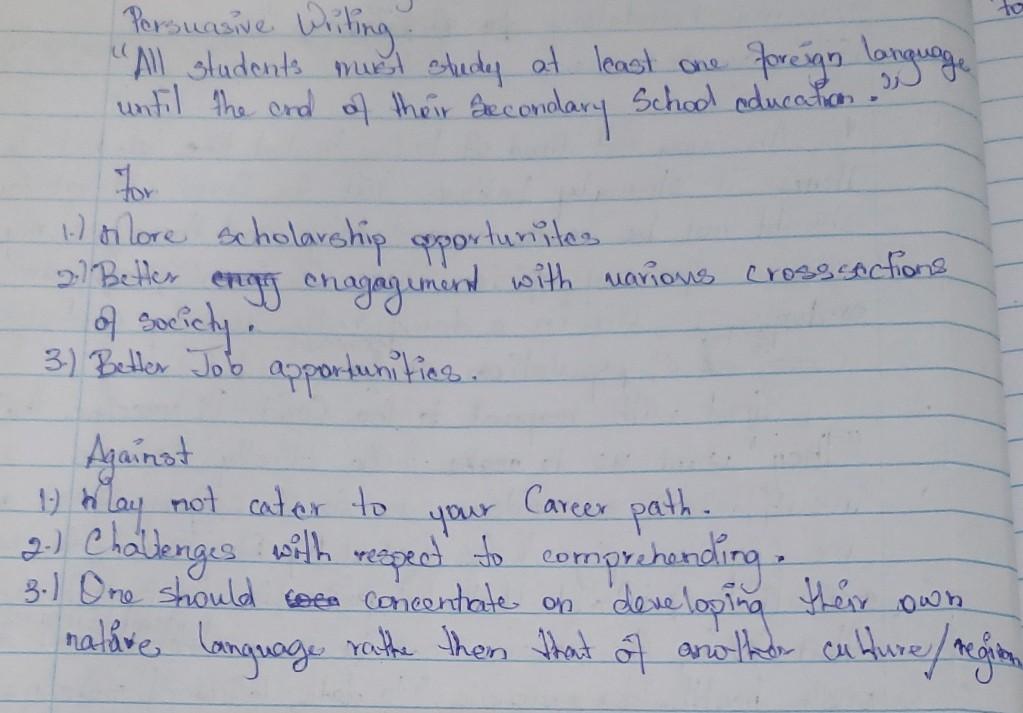 to
Persuasive Writing.
"All students must study at least one foreign language
until the end of their Secondary School education."
For
1.) More scholarship opportunites
2.) Better engg enagagement with various crosssections
of society.
3.) Better Job opportunities.
Against
1.) May not cater to your Career path.
2.) Challenges with respect to comprehending.
3.) One should concentrate on developing their own
native language rathe then that of another culture/region